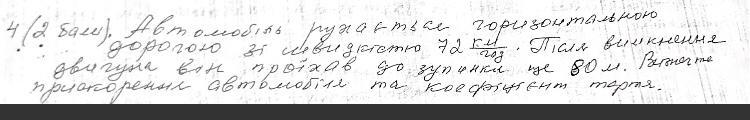 4 (2 бали). Автомобіль рухається горизонтальною
дорогою зі швидкістю 72 км/год. Після вимкнення
двигуна він проїхав до зупинки ще 80 м. Визначте
прискорення автомобіля та коефіцієнт тертя.